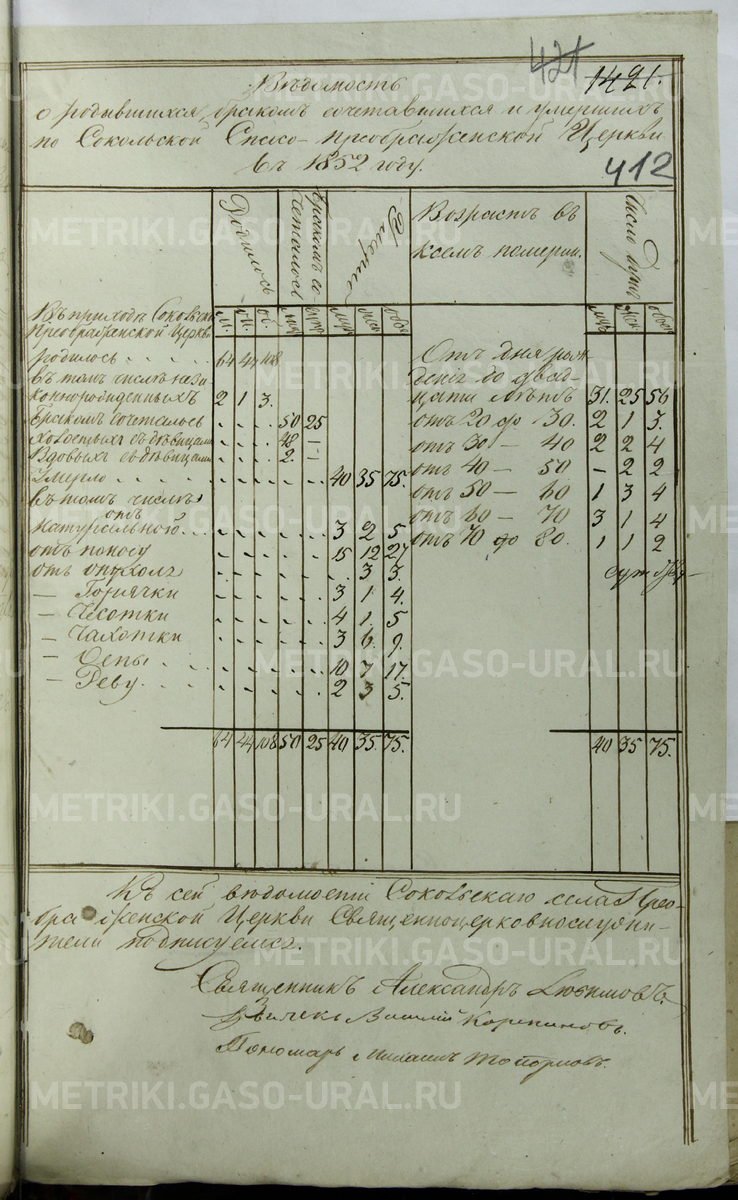 421
1421.
Вѣдомость
о родившихся, бракомъ сочетавшихся и умершихъ
по Сокольской Спасо-преображенской Церкви
въ 1852 году.
412
Родилось
Бракомъ со
четалось
Умерло
Возрастъ въ
коемъ померли.
Число душъ
Въ приходѣ Сокольской
Преображенской Церкви
родилось . . . . 64 44 108
въ томъ числѣ неза
коннорожденныхъ 2 1 3.
Бракомъ сочеталось 50 25
Холостыхъ съ дѣвицами 48 —
Вдовыхъ съ дѣвицами 2. —
Умерло 40 35 75.
въ томъ числѣ
отъ
натуральной 3 2 5
отъ поносу 15 12 27
отъ 3 3.
— Горячки 3 1 4.
— Чесотки 4 1. 5
— Чахотки 3 6. 9.
— Оспы 10 7 17.
— Реву 2 3 5.
64 44 108 50 25 40 35 75.
Отъ дня рож
денія до двад
цати лѣтъ 31. 25 56
отъ 20 до 30. 2 1 3.
отъ 30 — 40 2 2 4
отъ 40 — 50 — 2 2
отъ 50 — 60 1 3 4
отъ 60 — 70 3 1 4
отъ 70 до 80. 1 1 2
40 35 75.
Къ сей вѣдомости Сокольскаго села Прео-
браженской Церкви Священноцерковнослужи-
тели подписуемся.
Священникъ Александръ Любимовъ.
Дьячекъ Василій Корепановъ.
Пономарь Михаилъ Топорковъ.
METRIKI.GASO-URAL.RU